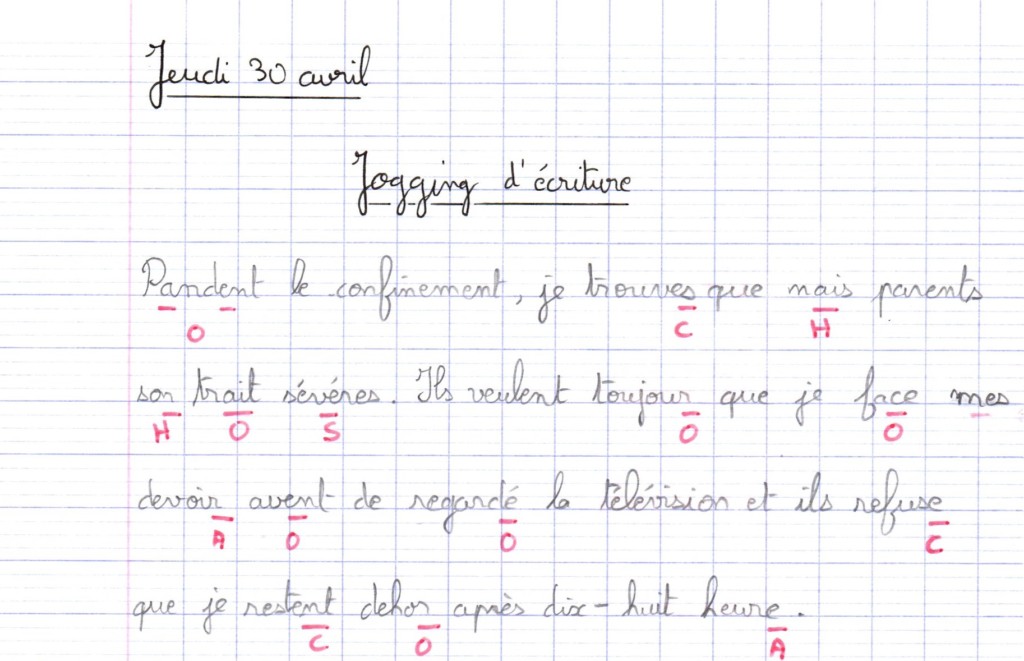 Jeudi 30 avril
Jogging d'écriture
Pandent le confinement, je trouves que mais parents
O C H
son trait sévéres. Ils veulent toujour que je face mes
H O S O O
devoir avent de regardé la télévision et ils refuse
A O O C
que je restent dehor après dix-huit heure.
C O A